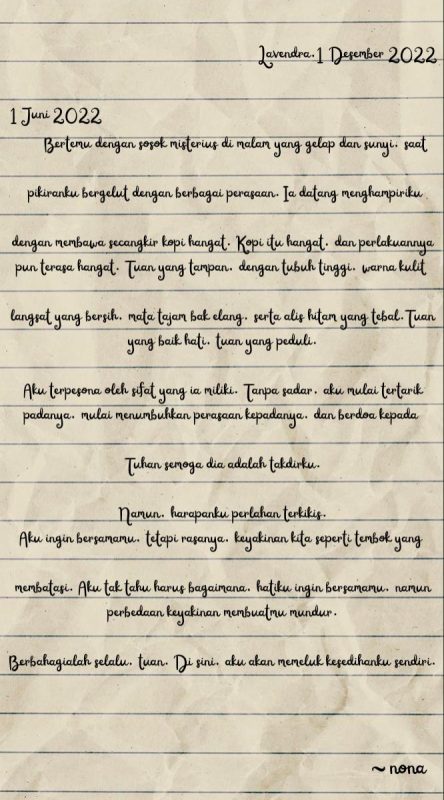 Lavendra, 1 Desember 2022
1 Juni 2022
Bertemu dengan sosok misterius di malam yang gelap dan sunyi, saat
pikiranku bergelut dengan berbagai perasaan. Ia datang menghampiriku
dengan membawa secangkir kopi hangat. Kopi itu hangat, dan perlakuannya
pun terasa hangat. Tuan yang tampan, dengan tubuh tinggi, warna kulit
langsat yang bersih, mata tajam bak elang, serta alis hitam yang tebal. Tuan
yang baik hati, tuan yang peduli.
Aku terpesona oleh sifat yang ia miliki. Tanpa sadar, aku mulai tertarik
padanya, mulai menumbuhkan perasaan kepadanya, dan berdoa kepada
Tuhan semoga dia adalah takdirku.
Namun, harapanku perlahan terkikis.
Aku ingin bersamamu, tetapi rasanya, keyakinan kita seperti tembok yang
membatasi. Aku tak tahu harus bagaimana, hatiku ingin bersamamu, namun
perbedaan keyakinan membuatmu mundur.
Berbahagialah selalu, tuan. Di sini, aku akan memeluk kesedihanku sendiri.
~ nona